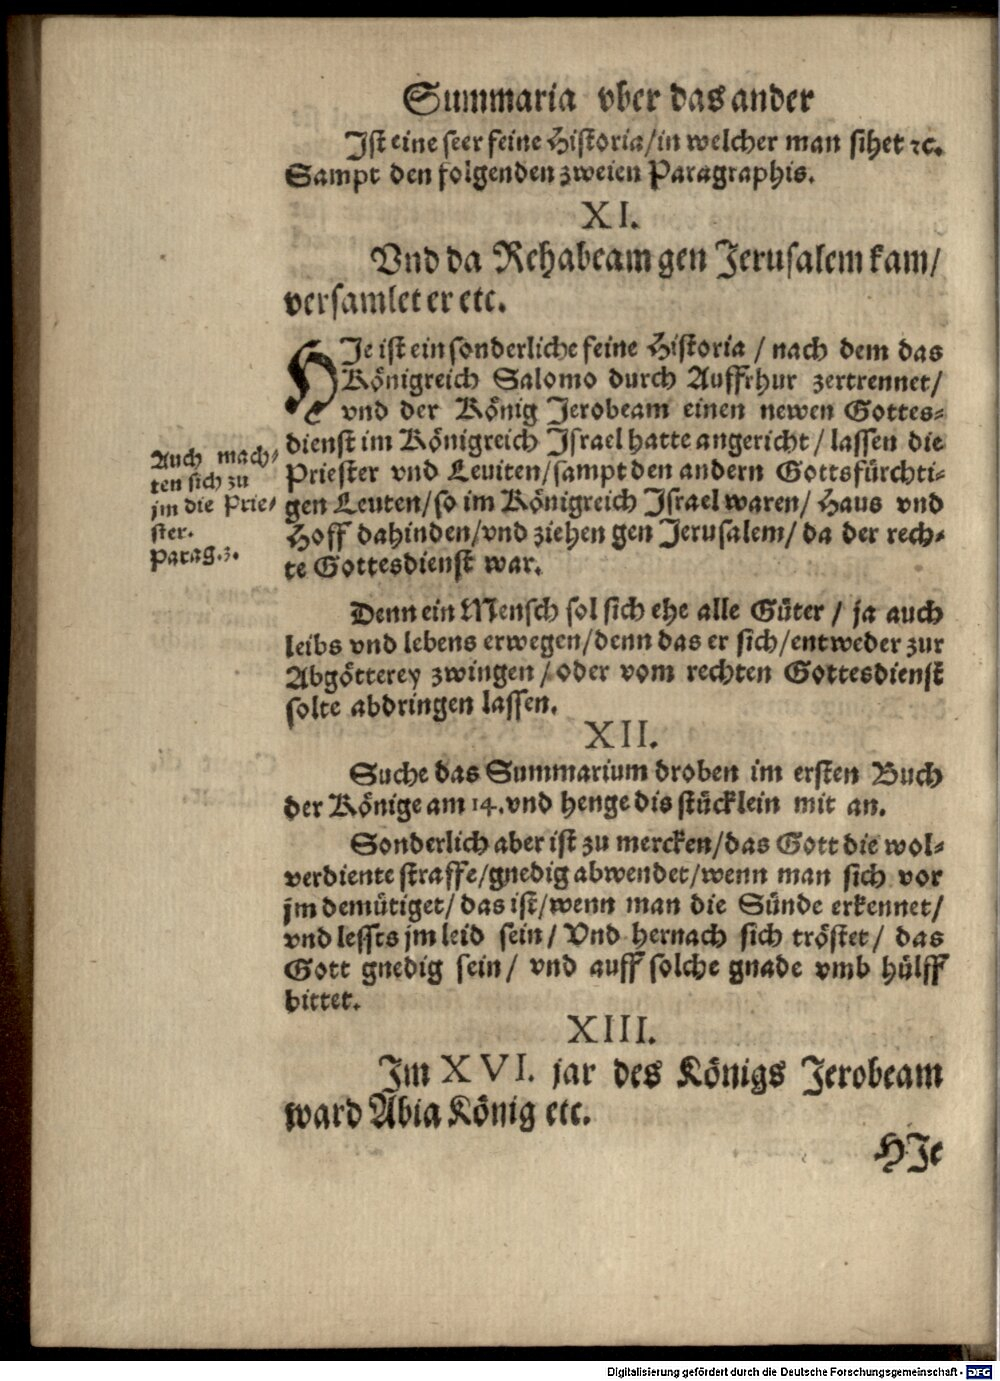 Summaria vber das ander
Jst eine seer feine Historia/in welcher man sihet ꝛc.
Sampt den folgenden zweien Paragraphis.
XI.
Vnd da Rehabeam gen Jerusalem kam/
versamlet er etc.
HJe ist ein sonderliche feine Historia / nach dem das
Königreich Salomo durch Auffrhur zertrennet/
vnd der König Jerobeam einen newen Gottes-
dienst im Königreich Jsrael hatte angericht / lassen die
Priester vnd Leuiten/sampt den andern Gottsfürchti-
gen Leuten/so im Königreich Jsrael waren/ Haus vnd
Hoff dahinden/vnd ziehen gen Jerusalem/ da der rech-
te Gottesdienst war.
Auch mach-
ten sich zu
jm die Prie-
ster.
Parag.3.
Denn ein Mensch sol sich ehe alle Güter / ja auch
leibs vnd lebens erwegen/denn das er sich/entweder zur
Abgötterey zwingen / oder vom rechten Gottesdienst
solte abdringen lassen.
XII.
Suche das Summarium droben im ersten Buch
der Könige am 14. vnd henge dis stücklein mit an.
Sonderlich aber ist zu mercken/das Gott die wol-
verdiente straffe/gnedig abwendet/wenn man sich vor
jm demütiget/ das ist/wenn man die Sünde erkennet/
vnd lessts jm leid sein/ Vnd hernach sich tröstet/ das
Gott gnedig sein/ vnd auff solche gnade vmb hülff
bittet.
XIII.
Jm XVI. jar des Königs Jerobeam
ward Abia König etc.
HJe
Digitalisierung gefördert durch die Deutsche Forschungsgemeinschaft - DFG